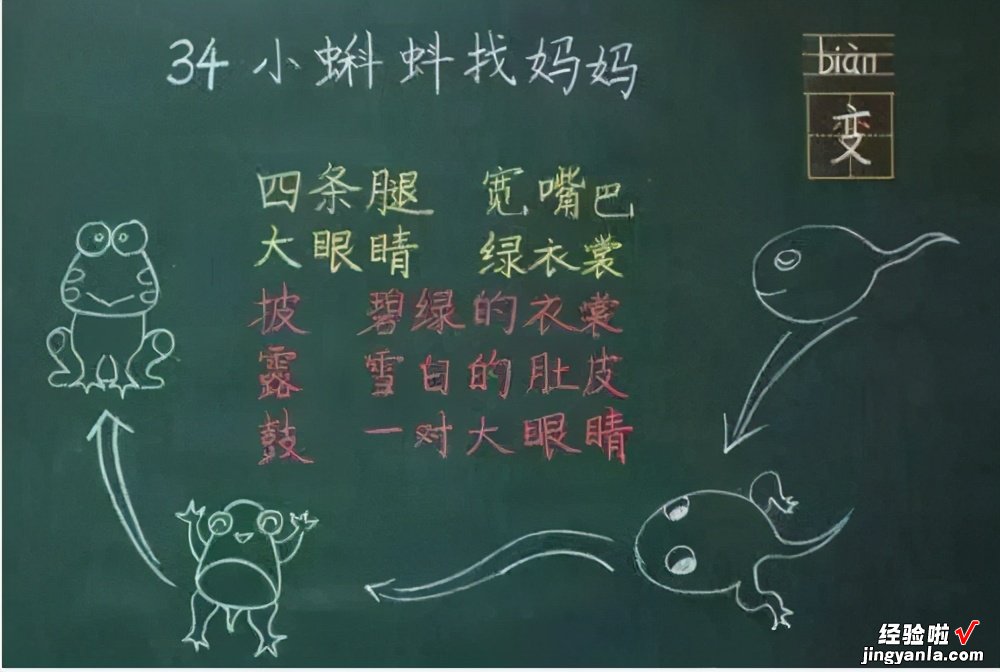 34 小蝌蚪找妈妈
biàn
变
四条腿 宽嘴巴
大眼睛 绿衣裳
披 碧绿的衣裳
露 雪白的肚皮
鼓 一对大眼睛
经验啦√
jingyanla.com